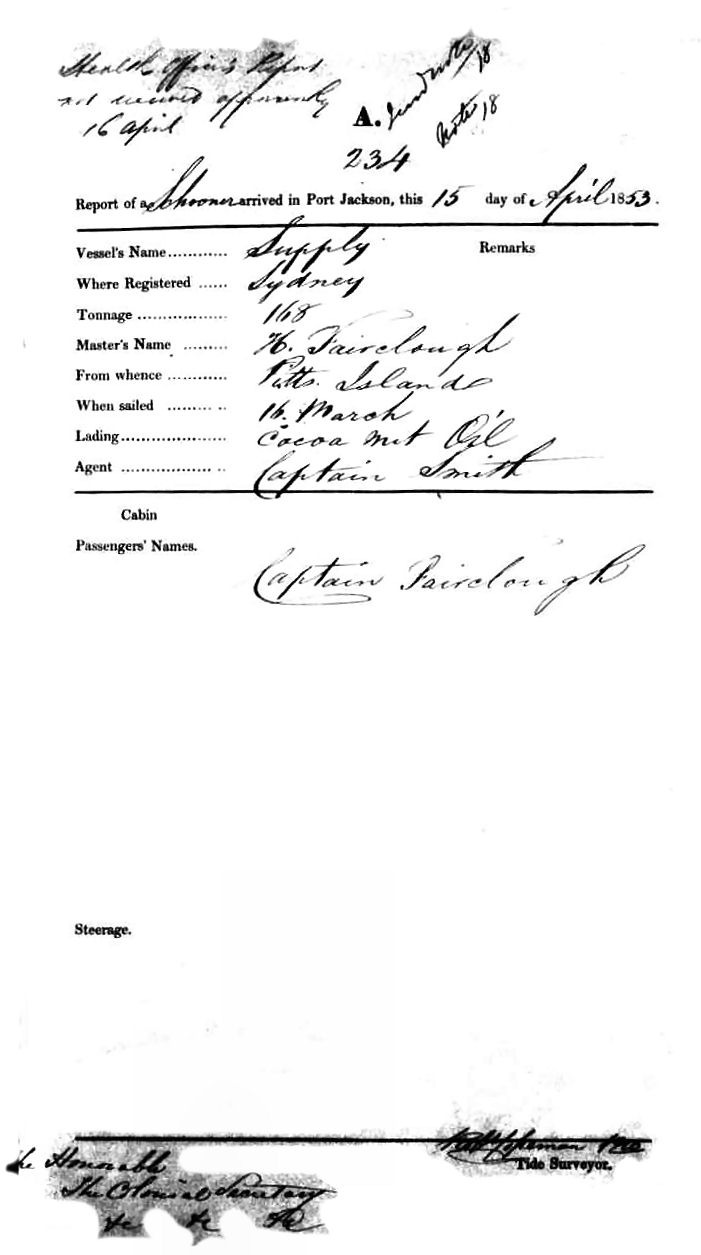 Health Officer's Report
not received apparently
16 April
18
Note 18
A.
234
Report of a Schooner arrived in Port Jackson, this 15 day of April 1853.
Vessel's Name............ Supply Remarks
Where Registered ...... Sydney
Tonnage .................. 168
Master's Name ......... H. Fairclough
From whence ............ Pitts. Island
When sailed ......... .. 16. March
Lading..................... Cocoa nut Oil
Agent .................. .. Captain Smith
Cabin
Passengers' Names.
Captain Fairclough
Steerage.
Tide Surveyor.
The Honorable
The Colonial Secretary
&c &c &c